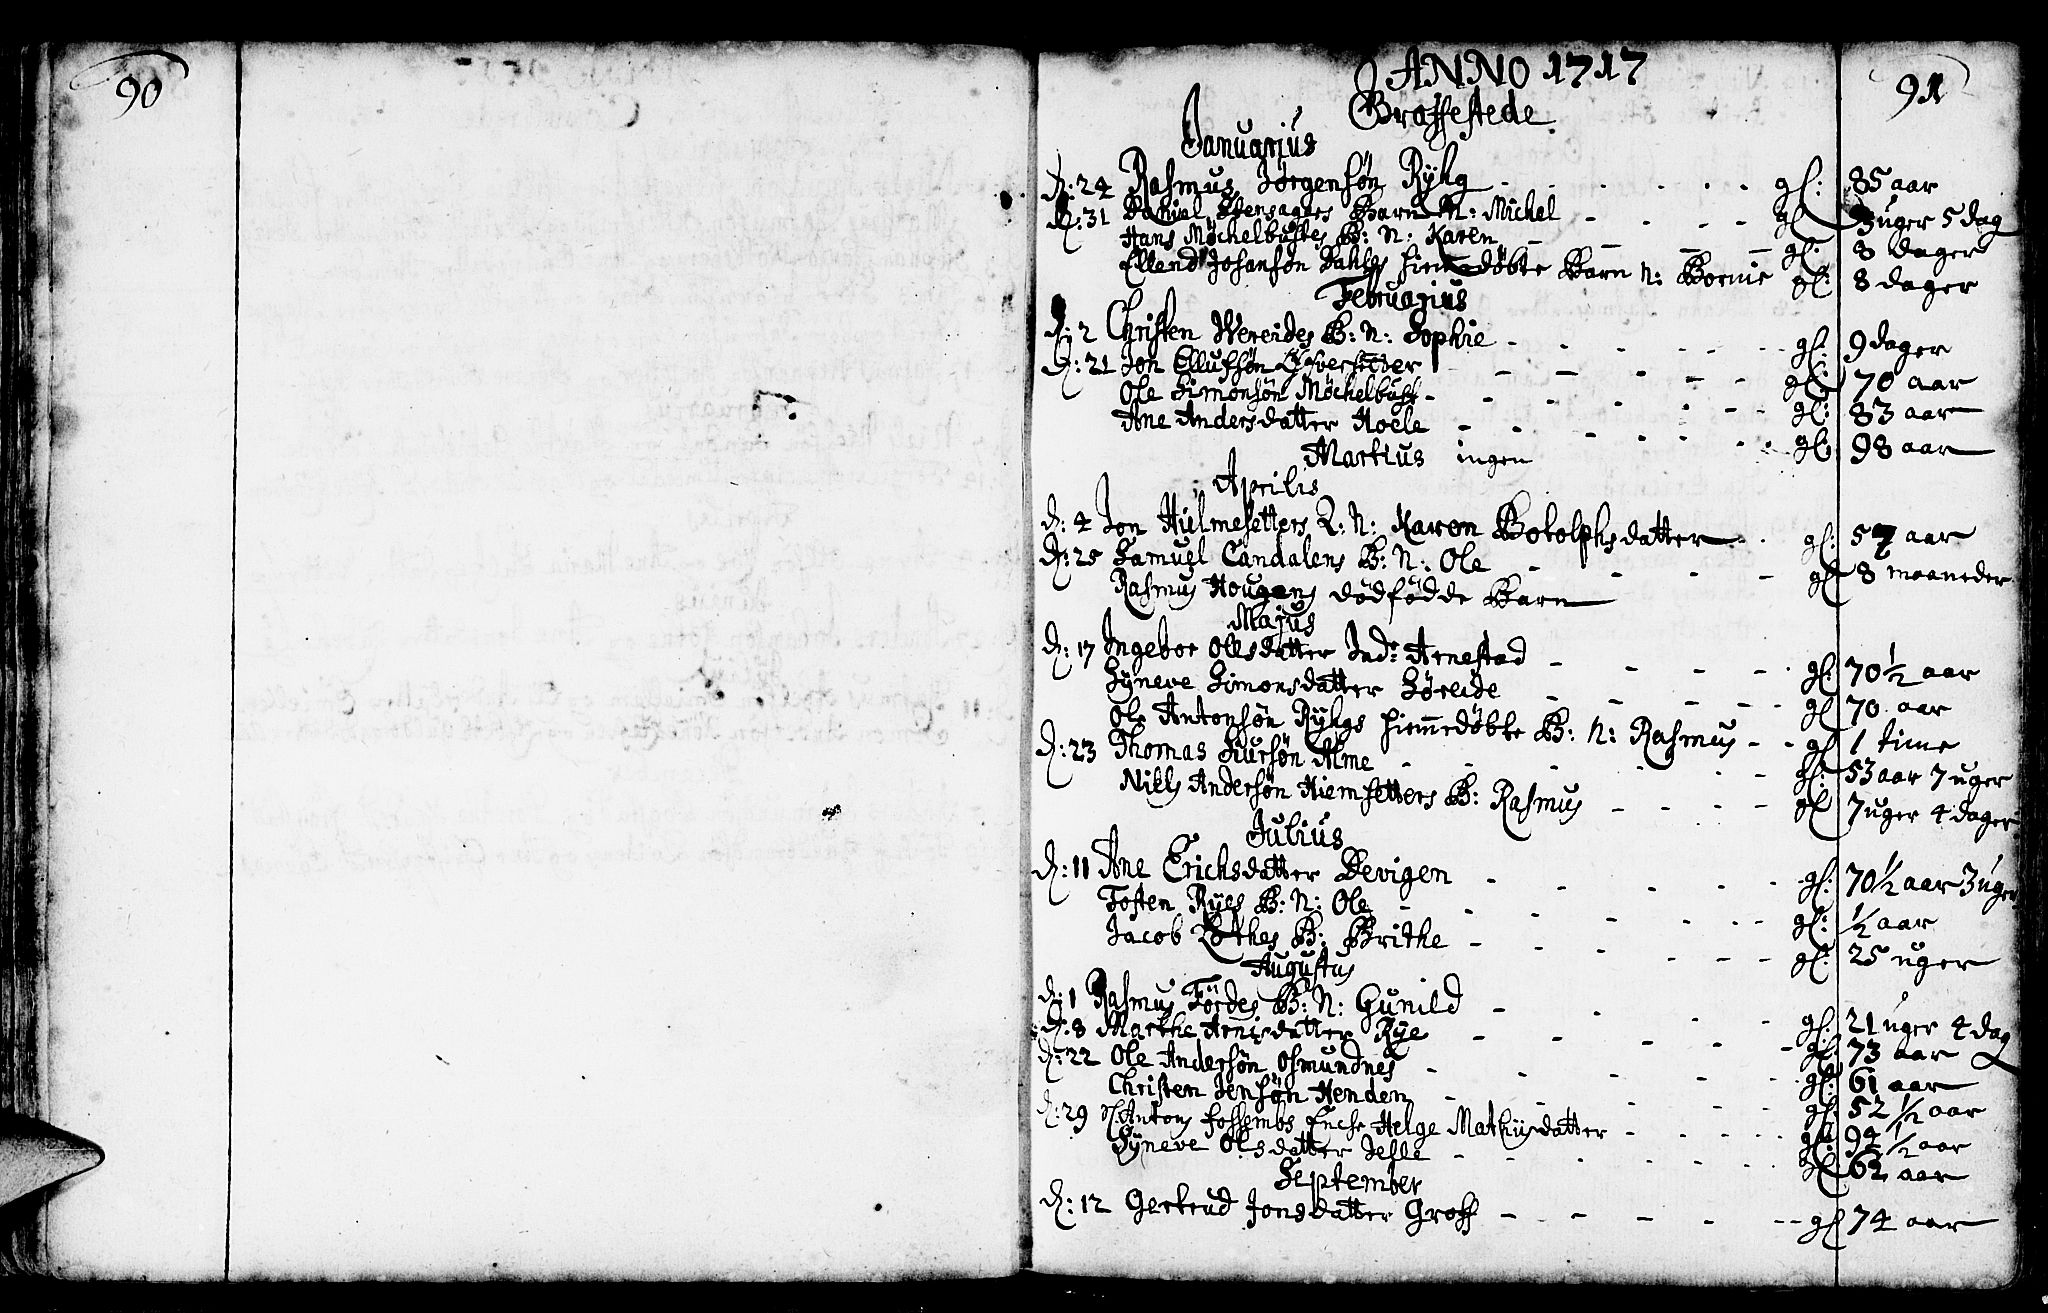 90
ANNO 1717
91
Graffestede
Januarius
d: 24 Rasmus Jörgensön Rÿhg gl: 85 aar
d: 31 Daniel Stensagers Barn N: Michel gl 3 uger 5 dag
Hans Möchelbustes B: N: Karen gl: 8 dager
Ellend Johansön Dahles hiemedöbte Barn N: gl: 8 dager
Februarius
d: 2 Christen Wereides B: N: Sophie gl: 9 dager
d: 21 Jon Ellufsön gl: 70 aar
Ole Simonsön Möchelbust gl: 83 aar
Ane Andersdatter Hoele gl: 98 aar
Martius ingen
Aprilis
d: 4 Jon Hielmesetters Q: N: Karen Botolphsdatter gl: 57 aar
d: 25 Samuel Candalens B: N: Ole gl 8 maaneder
Rasmus Hougens dödfödde Barn
Majus
d: 17 Ingebor Olesdatter Ind: Arnestad gl: 70 1/2 aar
Sÿneve Simonsdatter Söreide gl 70 aar
Ole Antonsön Rÿhgs hiemedöbte B: N: Rasmus gl 1 time
d: 23 Thomas Siursön Alme gl: 53 aar 7 uger
Niels Andersön Hiemsetters B: Rasmus gl 7 uger 4 dager
Julius
d: 11 Ane Erichsdatter Devigen gl: 70 1/2 aar 3 uger
Tosten Rÿes B: N: Ole gl: 1/2 aar
Jacob Lothes B: Brithe gl: 25 uger
Augustus
d: 1 Rasmus Fördes B: N: Gunild gl: 21 uger 4 dag
d: 8 Marthe Arnisdatter Rÿe gl: 73 aar
d: 22 Ole Andersön Osmundnes gl: 61 aar
Christen Jensön Henden gl: 52 1/2 aar
d: 29 Sl: Antons Fossembs Encke Helge Mathisdatter gl: 94 1/2 aar
Sÿneve Olsdatter Jelle gl 62 aar
September
d: 12 Gertrud Jonsdatter Groff gl 74 aar